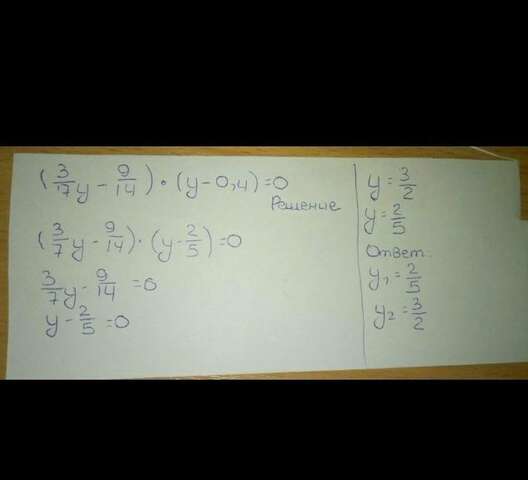 (3/7 y - 9/14) • (y - 0,4) = 0
Решение
(3/7 y - 9/14) · (y - 2/5) = 0
3/7 y - 9/14 = 0
y - 2/5 = 0
y = 3/2
y = 2/5
Ответ:
y₁ = 2/5
y₂ = 3/2